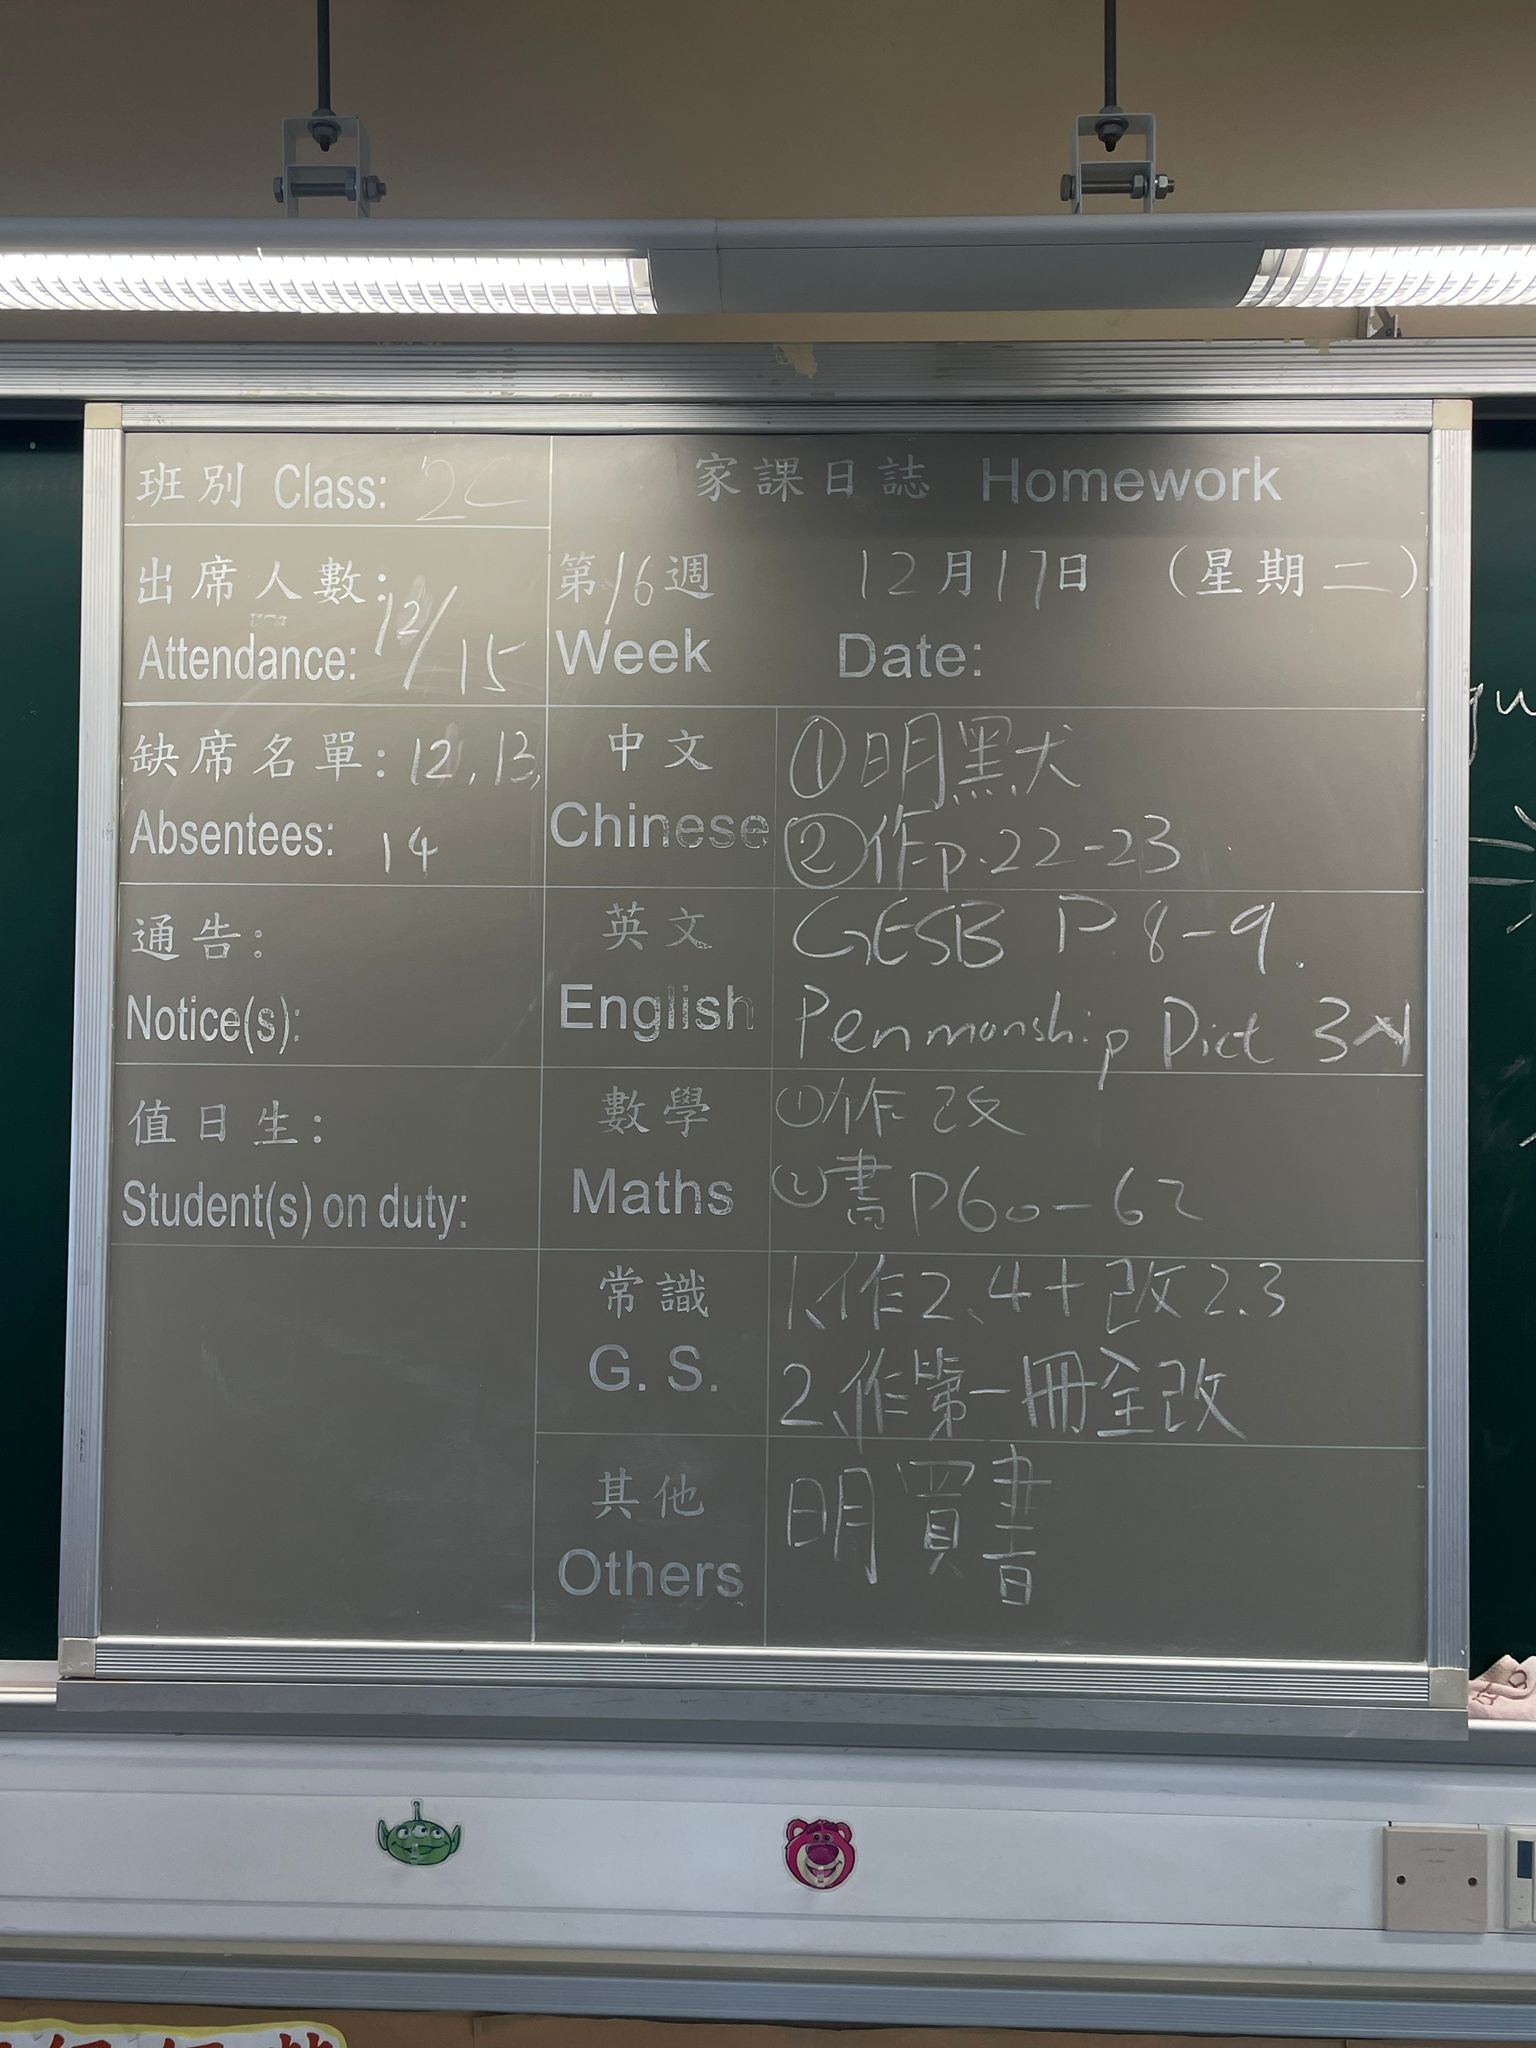 班別 Class: 2C
家課日誌 Homework
出席人數:
Attendance: 12/15
第16週 12月17日 (星期二)
Week Date:
缺席名單: 12, 13,
Absentees: 14
中文
Chinese
①明默犬
②作p.22-23
通告:
Notice(s):
英文
English
GESB P.8-9.
Penmanship Dict 3
值日生:
Student(s) on duty:
數學
Maths
①作改
②書P60-62
常識
G. S.
1、作2、4+改2.3
2、作第一冊全改
其他
Others
明買書